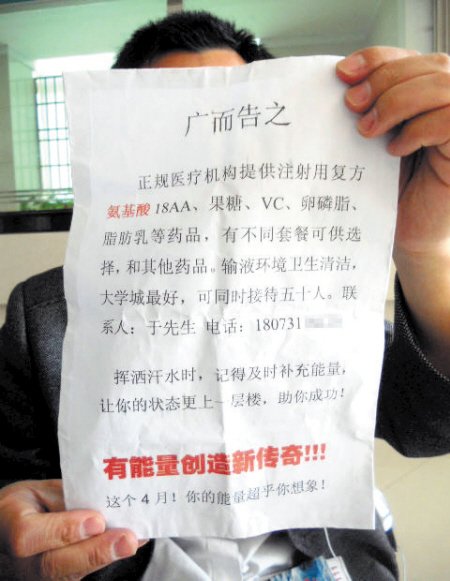 广而告之
正规医疗机构提供注射用复方
氨基酸18AA、果糖、VC、卵磷脂、
脂肪乳等药品，有不同套餐可供选
择，和其他药品。输液环境卫生清洁，
大学城最好，可同时接待五十人。联
系人：于先生 电话：180731
挥洒汗水时，记得及时补充能量，
让你的状态更上一层楼，助你成功！
有能量创造新传奇!!!
这个 4 月！你的能量超乎你想象！